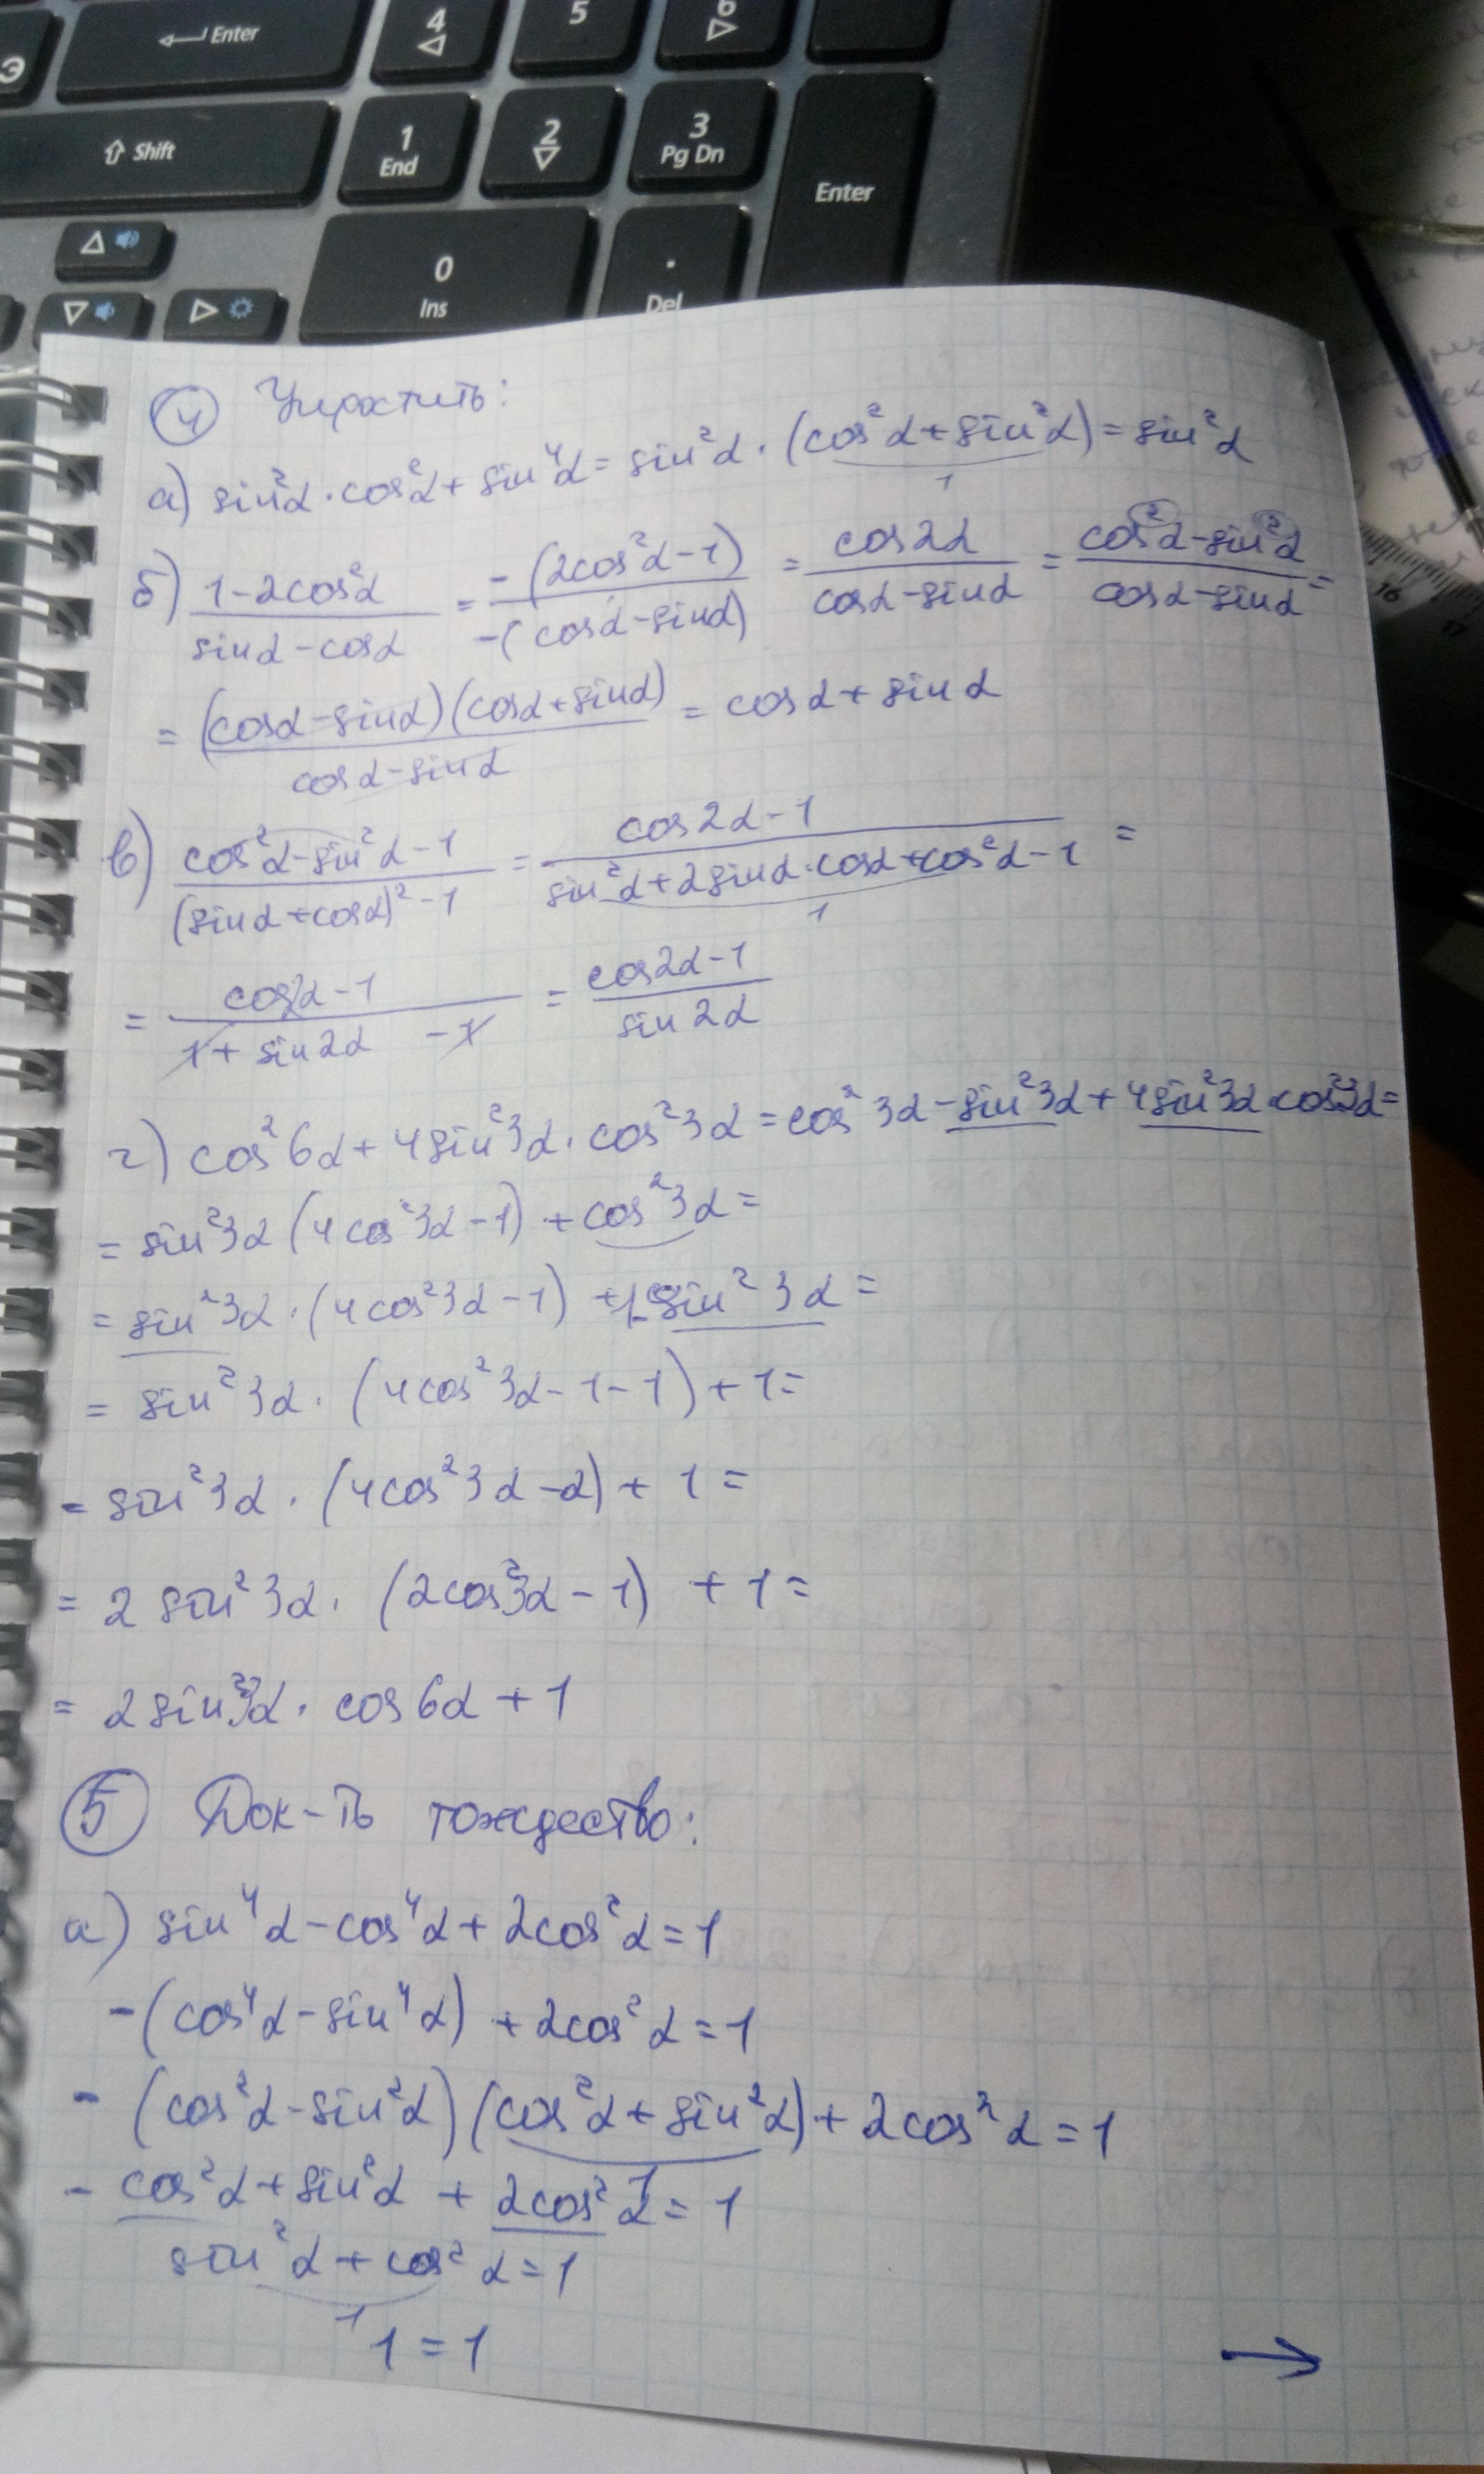 Э
Enter
4
5
6
Shift
1
End
2
3
Pg Dn
Enter
0
Ins
.
Del
4 Упростить:
а) sin²α · cos²α + sin⁴α = sin²α · (cos²α + sin²α) = sin²α
1
б) (1 - 2cos²α)/(sinα - cosα) = (-(2cos²α - 1))/(-(cosα - sinα)) = (cos2α)/(cosα - sinα) = (cos²α - sin²α)/(cosα - sinα) =
= ((cosα - sinα)(cosα + sinα))/(cosα - sinα) = cosα + sinα
в) (cos²α - sin²α - 1)/((sinα + cosα)² - 1) = (cos2α - 1)/(sin²α + 2sinα · cosα + cos²α - 1) =
1
= (cos2α - 1)/(1 + sin2α - 1) = (cos2α - 1)/(sin2α)
г) cos²6α + 4sin²3α · cos²3α = cos²3α - sin²3α + 4sin²3α cos²3α =
= sin²3α (4cos²3α - 1) + cos²3α =
= sin²3α · (4cos²3α - 1) + 1 - sin²3α =
= sin²3α · (4cos²3α - 1 - 1) + 1 =
= sin²3α · (4cos²3α - 2) + 1 =
= 2 sin²3α · (2cos²3α - 1) + 1 =
= 2sin²3α · cos6α + 1
5 Док-ть тождество:
а) sin⁴α - cos⁴α + 2cos²α = 1
-(cos⁴α - sin⁴α) + 2cos²α = 1
- (cos²α - sin²α)(cos²α + sin²α) + 2cos²α = 1
1
- cos²α + sin²α + 2cos²α = 1
sin²α + cos²α = 1
1
1 = 1
→
16
17